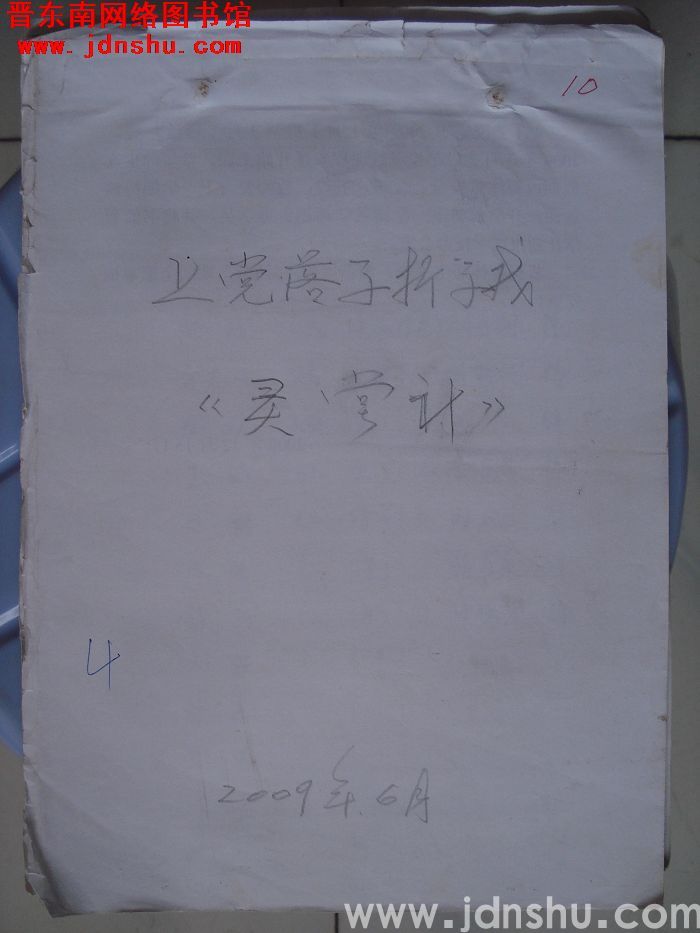 晋东南网络图书馆
www.jdnshu.com
10
上党落子折子戏
《灵堂计》
4
2009年.6月
www.jdnshu.com